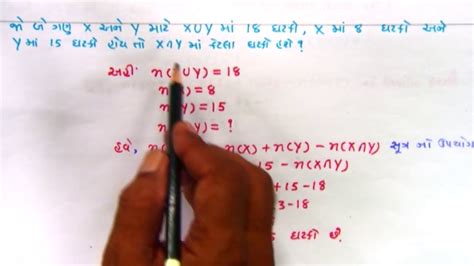 જો બે ગણ X અને Y માટે X∪Y માં 18 ઘટકો, X માં 8 ઘટકો અને
Y માં 15 ઘટકો હોય તો X∩Y માં કેટલા ઘટકો હશે ?
અહીં n( ∪Y) = 18
n( ) = 8
n( Y) = 15
n( Y) = ?
હવે, n( n(X) + n(Y) - n(X∩Y) સૂત્ર નો ઉપયોગ
15 - n(X∩Y)
+ 15 - 18
3 - 18
5 ઘટકો છે.